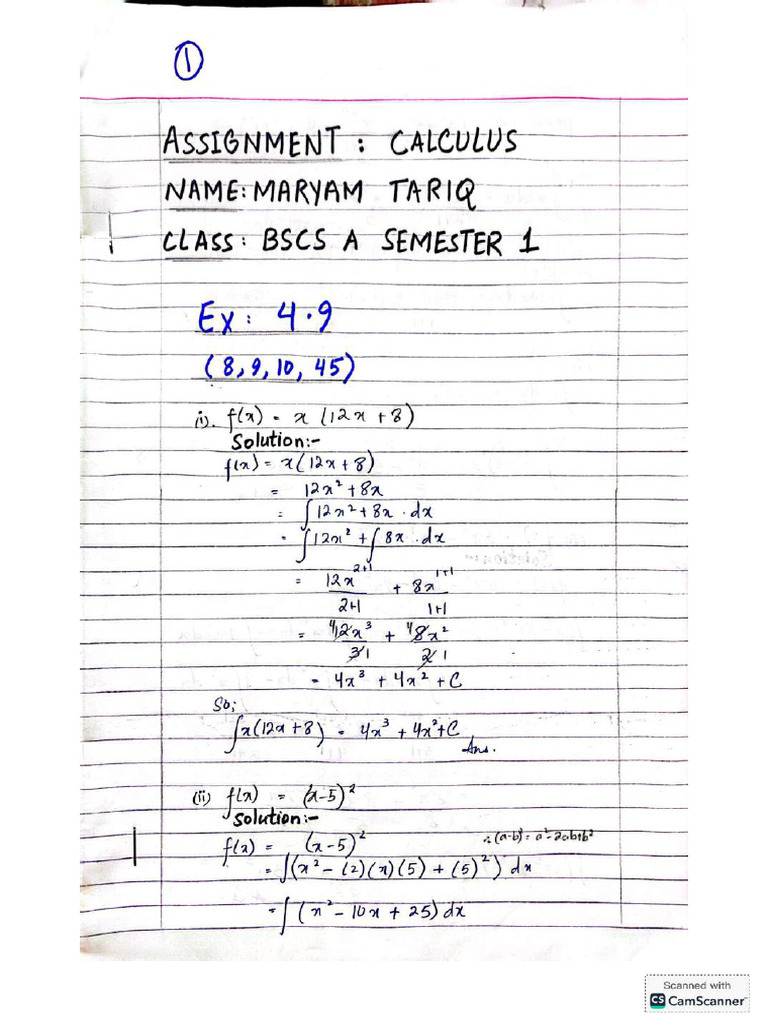 1
ASSIGNMENT : CALCULUS
NAME: MARYAM TARIQ
CLASS: BSCS A SEMESTER 1
Ex: 4.9
(8,9,10, 45)
(i). f(x) = x (12x + 8)
Solution:-
f(x) = x(12x+8)
= 12x² + 8x
= ∫12x² + 8x · dx
= ∫12x² + ∫8x · dx
= 12x²⁺¹/2+1 + 8x¹⁺¹/1+1
= ⁴12x³/3 1 + ⁴8x²/2 1
= 4x³ + 4x² + C
So;
∫x(12x+8) = 4x³ + 4x²+C
Ans.
(ii) f(x) = (x-5)²
Solution:-
f(x) = (x-5)² ∴ (a-b)² = a²-2ab+b²
= ∫(x² - (2)(x)(5) + (5)²) dx
= ∫(x² - 10x + 25) dx
Scanned with
CS CamScanner